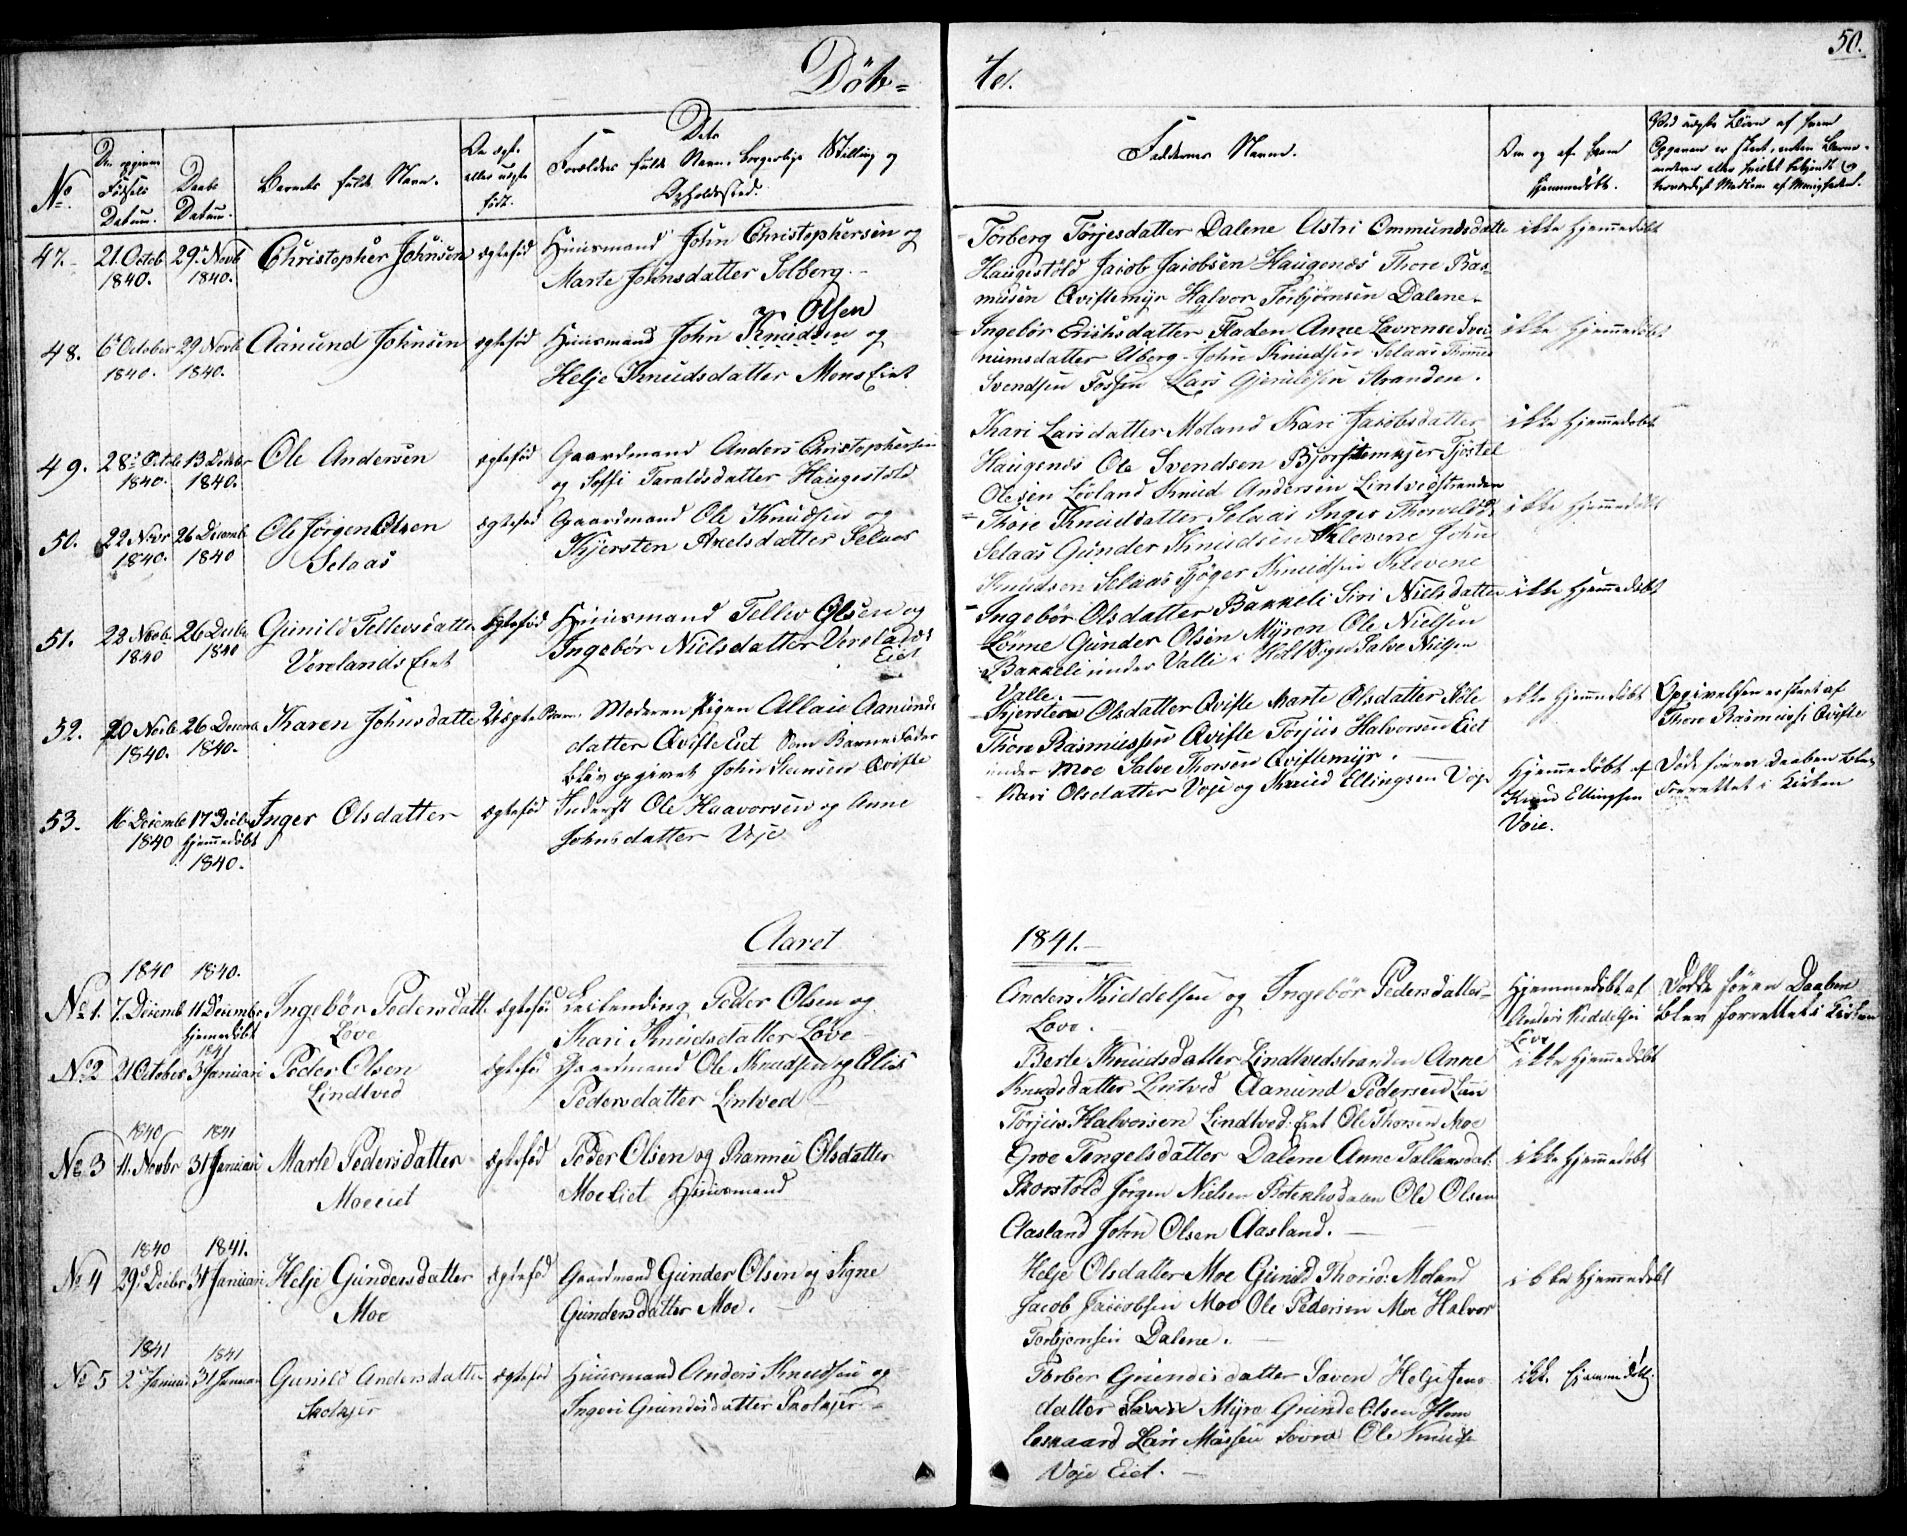 50.
Döb= te.
No.
Den opgivne Fødsels Datum.
Daabs Datum.
Barnets fulde Navn.
Om ægte eller uægte født.
Dets Forældres fulde Navn, borgerlige Stilling og Opholdssted.
Faddernes Navne.
Om og af hvem hjemmedøbt.
47. 21 Octob 1840. 29 Novb 1840. Christopher Johnsen ægtefød
Huusmand John Christophersen og
Marte Johnsdatter Solberg.
Torberg Torjesdatter Dalene Astri Ommundsdatte
Haugestöld Jacob Jacobsen Haugenes Thore Ras-
musen Qvistemyr Halvor Torbjørnsen Dalene
ikke hjemmedøbt
48. 6 October 1840. 29 Novb 1840. Aanund Johnsen ægtefød
Olsen
Huusmand John Knudsen og
Helje Knudsdatter Mons Eiet
Ingebör Erichsdatter Staden Anne Laurense Sve-
numsdatter Uberg John Knudsen Selaas Thomas
Svendsen Fossen Lars Gjeruldsen Stranden.
ikke hjemmedøbt
49. 28 Octob 1840. 13 Decbr 1840. Ole Andersen ægtefød
Gaardmand Anders Christophersen
og Soffi Taraldsdatter Haugestöld
Kari Larsdatter Moland Kari Jacobsdatter
Haugenes Ole Svendsen Tjostel
Olesen Lövland Knud Andersen Lintvedstranden
ikke hjemmedøbt
50. 22 Novr 1840. 26 Decemb 1840 Ole Jörgen Olsen
Selaas
ægtefød
Gaardmand Ole Knudsen og
Kjersten Axelsdatter Selaas
Thore Knudsdatter Selaas Inger Thorvalds
Selaas Gunder Knudsen Klevene John
Knudsen Selaas Tjöger Knudsen Klevene
ikke hjemmedøbt
51. 23 Novb 1840 26 Decbr 1840 Gunild Tellevsdatter
Verelands Eiet
ægtefød
Huusmand Tellev Olsen og
Ingebør Nielsdatter Verelands
Eiet
Ingebör Olsdatter Bakkeli Siri Nielsdatter
Lönne Gunder Olsen Myren Ole Nielsen
Bakkeli under Valle i Holt Salve Nielsen
Valle
ikke hjemmedøbt
52. 20 Novb 1840. 26 Decemb 1840. Karen Johnsdatte Uægte Barn.
Moderen Pigen Allaie Aanunds
datter Qviste Eiet Som Barnefader
blev opgivet John Steensen Qviste
Kjersten Olsdatter Qviste Marte Olsdatter
Thore Rasmussen Qviste Torjus Halvorsen Eiet
under Moe Salve Thorsen Qvistemyr.
ikke hjemmedøbt
Opgivelsen er skeet af
Thore Rasmussen Qviste
53. 16 Decemb 1840 17 Decbr hjemmedøbt 1840. Inger Olsdatter ægtefød
Inderst Ole Haavorsen og Anne
Johnsdatter Voje
Kari Olsdatter Voje og Knud Ellingsen Voje
Hjemmedøbt af
Knud Ellingsen
Voie.
Døde førend Daaben blev
forrettet i Kirken
Aaret 1841.
1840 1840.
No 1. 7 Decemb 11 Decembr hjemmedøbt Ingebör Pedersdatt.
Love
ægtefød
Leilending Peder Olsen og
Kari Knudsdatter Love
Anders Kiddelsen og Ingebör Pedersdatter
Love.
Hjemmedøbt af
Anders Kiddelsen
Love
Døde fören Daaben
blev forrettet i Kirken
1841
No 2 21 October 3 Januari Peder Olsen
Lindtved
ægtefød
Gaardmand Ole Knudsen og Alis
Pedersdatter Lintved
Berte Knudsdatter Lindtvedstranden Anne
Knudsdatter Lintved Aanund Pedersen
Torjus Halvorsen Lindtved Eiet Ole Thorsen Moe
ikke hjemmedøbt
1840 1841
No 3 11. Novbr 31 Januari Marte Pedersdatter
Moe eiet
ægtefød
Peder Olsen og Rannei Olsdatter
Moe Eiet Huusmand
Groe Tengelsdatter Dalene Anne Tallaksdat.
Skorstöld Jörgen Nielsen Ole Olsen
Aasland John Olsen Aasland.
ikke hjemmedøbt
1840 1841.
No 4 29 Decbr 31 Januari Helje Gundersdatter
Moe
ægtefød
Gaardmand Gunder Olsen og Signe
Gundersdatter Moe.
Helje Olsdatter Moe Gunild Thorsd: Moland
Jacob Jacobsen Moe Ole Pedersen Moe Halvor
Torbjørnsen Dalene.
ikke hjemmedøbt
1841 1841
No 5 2 Januar 31 Januar Gunild Andersdatter
ægtefød
Huusmand Anders Knudsen og
Ingeri Gundersdatter
Torber Gundersdatter Saven Helje Jens
datter Myra Gunde Olsen
Lars Ole Knuds
Voje Eiet.
ikke hjemmedøbt